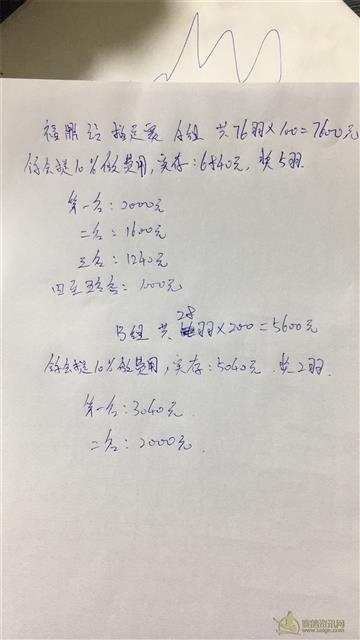 福鹏 指定赛 A组 共76羽×100=7600元
除去提10%做费用,实存:6840元,奖5羽
第一名:2000元
二名:1600元
三名:1240元
四至五名各:1000元
B组 共28羽×200=5600元
除去提10%做费用,实存:5040元.奖2羽.
第一名:3040元.
二名:2000元.
赛鸽资讯网
www.saige.com